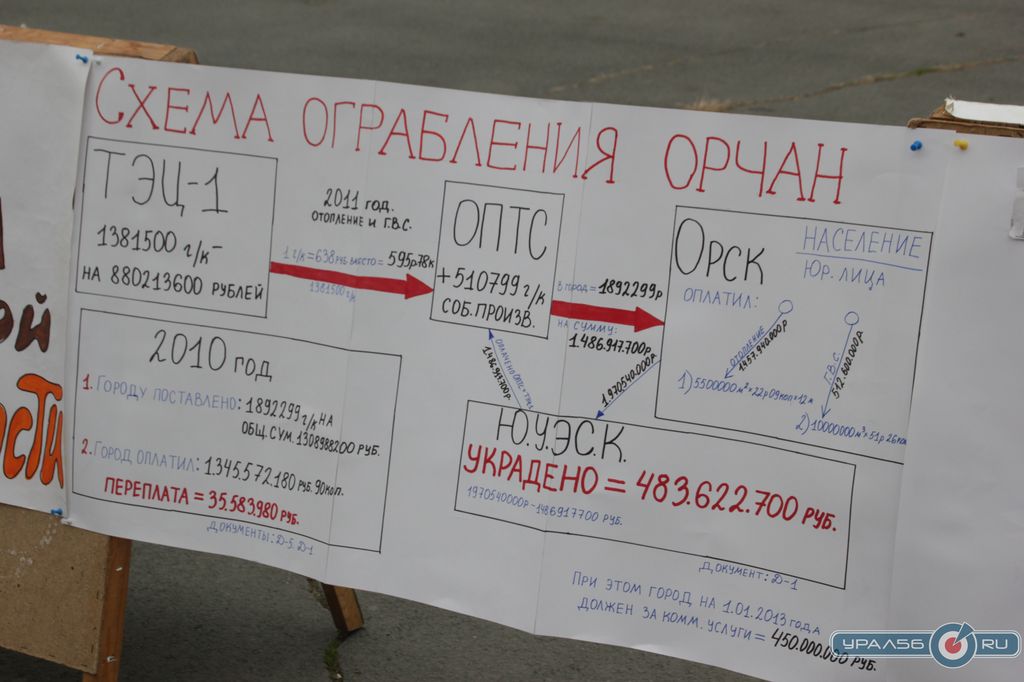 СХЕМА ОГРАБЛЕНИЯ ОРЧАН
ТЭЦ-1
1381500 г/к
НА 880213600 РУБЛЕЙ
2011 год.
ОТОПЛЕНИЕ И Г.В.С.
1 г/к=638руб вместо = 595р.78к
1381500 г/к
ОПТС
+510799 г/к
СОБ.ПРОИЗВ.
В ГОРОД = 1892299р
НА СУММУ:
1.486.917.700р.
ОРСК
НАСЕЛЕНИЕ
ЮР. ЛИЦА
ОПЛАТИЛ:
ОТОПЛЕНИЕ
1457.940.000р
Г.В.С.
512.600.000р
1) 5500000м²×22р09коп×12м
2) 10000000м³×51р26коп
2010 год
1. ГОРОДУ ПОСТАВЛЕНО: 1892299г/к НА
ОБЩ.СУМ.1308988200 РУБ.
2. ГОРОД ОПЛАТИЛ: 1.345.572.180 РУБ.90коп.
ПЕРЕПЛАТА = 35.583.980 РУБ.
ДОКУМЕНТЫ: Д-5.Д-1
ОПЛАЧЕНО ОПТС
1.486.917.700р.
1.970540.000р
Ю.У.Э.С.К.
УКРАДЕНО = 483.622.700 РУБ.
1970540000р-1486917700 РУБ.
ДОКУМЕНТ: Д-1
ПРИ ЭТОМ ГОРОД НА 1.01.2013 ГОДА
ДОЛЖЕН ЗА КОММ. УСЛУГИ = 450.000.000 РУБ.
УРАЛ56 RU